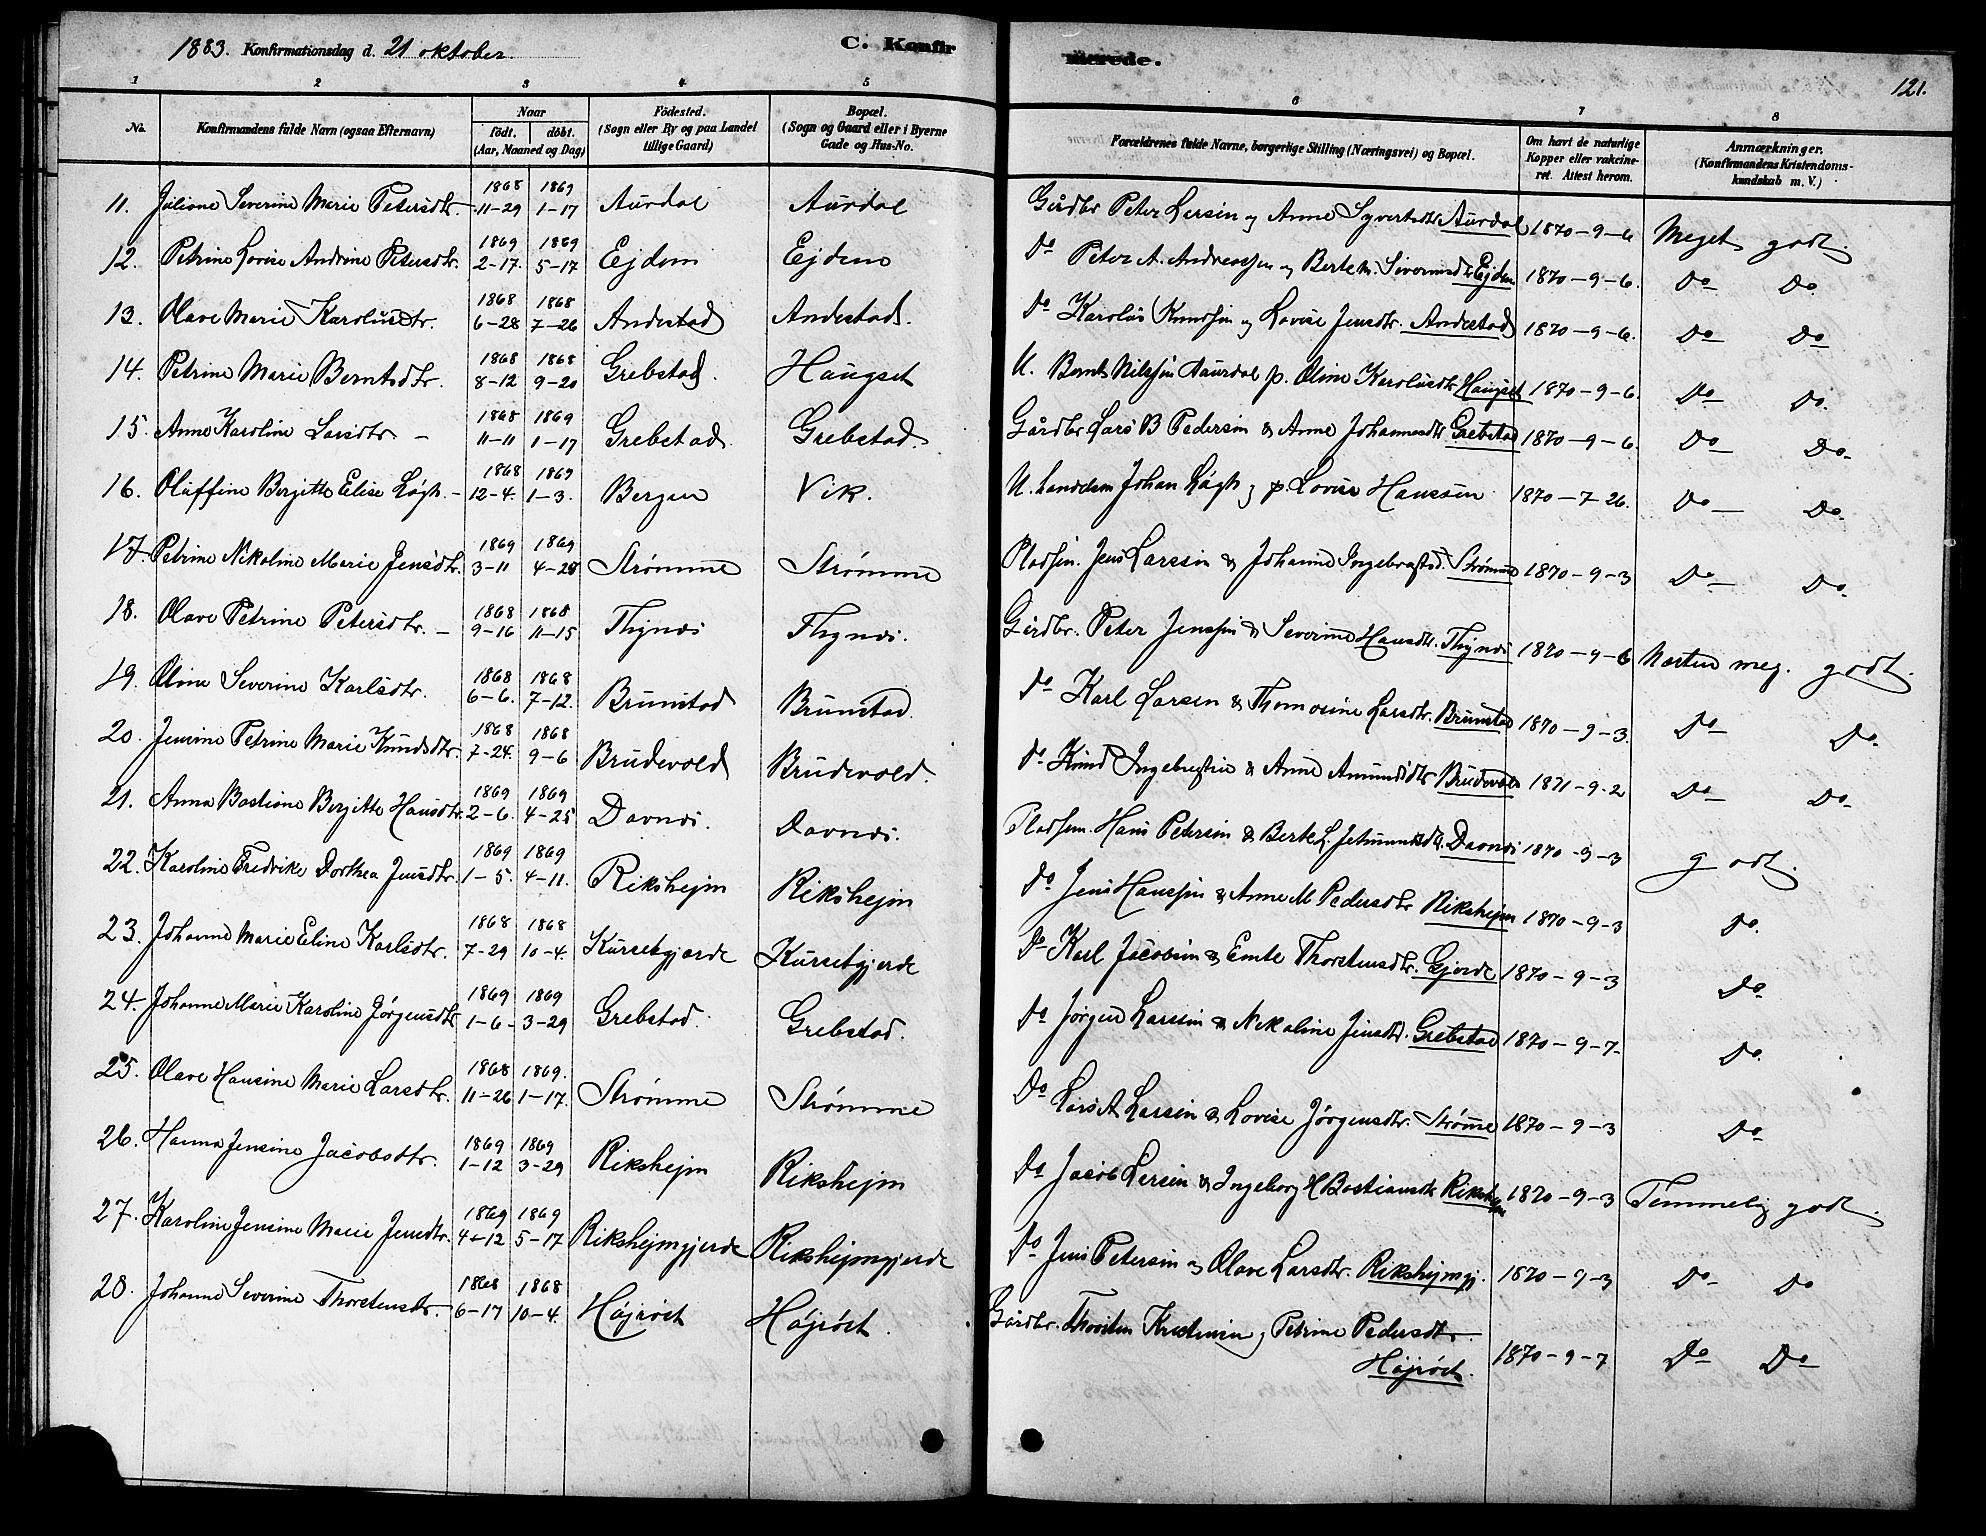 1883. Konfirmationsdag d. 21 oktober. C. Konfirmerede. 121.
1 2 3 4 5 6 7 8
No. Konfirmandens fulde Navn (ogsaa Efternavn) Naar født. døbt. (Aar, Maaned og Dag) Fødested. (Sogn eller By og paa Landet tillige Gaard) Bopæl. (Sogn og Gaard eller i Byerne Gade og Hus-No. Forældrenes fulde Navne, borgerlige Stilling (Næringsvei) og Bopæl. Om havt de naturlige Kopper eller vakcineret. Attest herom. Anmærkninger. (Konfirmandens Kristendomskundskab m. V.)
11. Juliane Severine Marie Petersdtr. 1868 11-29 1869 1-17 Aurdal Aurdal Gårdbr Peter Larsen og Anne Syvertsdtr Aurdal 1870-9-6 Meget godt.
12. Petrine Lovise Andrine Petersdtr. 1869 2-17. 1869 5-17 Ejdem Ejdem Do Peter A. Andreassen og Berte M. Sivertsdtr Ejdem 1870-9-6. Do Do
13. Olave Marie Karolusdtr. 1868 6-28 1868 7-26 Andestad Andestad. Do Karolus Knudsen og Lovise Jensdtr. Andestad 1870-9-6. Do Do
14. Petrine Marie Berntsdtr. 1868 8-12 1868 9-20 Grebstad. Haugset U. Bernt Nilssen Aaurdal p. Oline Karolusdtr Haugset 1870-9-6. Do Do.
15. Anne Karoline Larsdtr - 1868 11-11 1869 1-17 Grebstad. Grebstad Gårdbr Lars B Pedersen & Anne Johannesdtr Grebstad 1870-9-6. Do Do.
16. Oluffine Bergitte Elise Løgh. - 1868 12-4. 1869 1-3. Bergen Vik. U. Johan Løgh og p. Lovise Hanssen 1870-7-26. Do Do.
17. Petrine Nikoline Marie Jensdtr. 1869 3-11 1869 4-28 Strømme Strømme Pladsm. Jens Larssen & Johanne Ingebrigtsd. Strømme 1870-9-3 Do Do.
18. Olave Petrine Petersdtr. - 1868 9-16 1868 11-15 Thynæs Thynæs. Gårdbr. Peter Jenssen & Severine Hansdtr. Thynæs 1870-9-6 Næsten meg. godt.
19. Oline Severine Karlsdtr. 1868 6-6. 1868 7-12. Brunstad Brunstad. Do Karl Larsen & Thomasine Larsdtr. Brunstad 1870-9-3. Do Do.
20. Jensine Petrine Marie Knudsdtr. 1868 7-24. 1868 9-6 Brudevold Brudevold. Do Knud Ingebrigtsen & Anne Amundsdtr Brudevold 1871-9-2 Do Do.
21. Anna Bastiane Bergitte Hansdtr. 1869 2-6. 1869 4-25 Davnæs. Davnæs. Pladsm. Hans Petersen & Berte L. Jetmundsdtr. Davnæs 1870-9-3 godt.
22. Karoline Fredrike Dorthea Jensdtr. 1869 1-5. 1869 4-11. Rikshejm Rikshejm Do Jens Hanssen & Anne M Pedersdtr Rikshejm 1870-9-3 Do.
23. Johanne Marie Eline Karlsdtr. 1868 7-29 1868 10-4. Kursetgjærde Kursetgjerde Do Karl Jacobsen & Emte Thorstensdtr. Gjerde 1870-9-3 Do.
24. Johanne Marie Karoline Jørgensdtr 1869 1-6- 1869 3-29 Grebstad. Grebstad. Do Jørgen Larssen & Nikoline Jensdtr. Grebstad 1870-9-7- Do.
25. Olave Hansine Marie Larsdtr. 1868 11-26 1869. 1-17. Strømme Strømme Do Lars A Larssen & Lovise Jørgensdtr. Strømme 1870-9-3 Do.
26. Hanna Jensine Jacobsdtr. 1869 1-12 1869 3-29 Rikshejm Rikshejm Do Jacob Larsen & Ingeborg H Bastiansdtr Rikshejm 1870-9-3 Temmelig godt.
27. Karoline Jensine Marie Jensdtr. 1869 4-12 1869 5-17 Rikshejmgjerde Rikshejmgjerde Do Jens Petersen og Olave Larsdtr. Rikshejmgj. 1870-9-3 Do Do
28. Johanne Severine Thorstensdtr. 1868 6-17 1868 10-4. Højröst Højröst. Gårdbr. Thorsten Kristensen og Petrine Pedersdtr
Højröst. 1870-9-7 Do Do